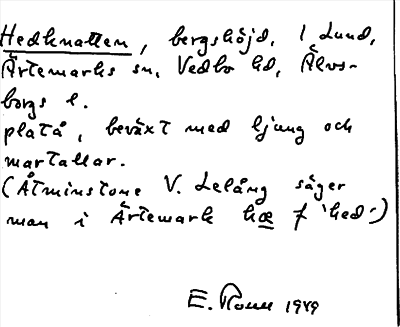 Hedknatten, bergshöjd, l Lund,
Ärtemarks sn, Vedbo hd, Älvs-
borgs l.
platå, beväxt med ljung och
martallar.
(Åtminstone V. Lelång säger
man i Ärtemark hæ f 'hed')
E. 1949